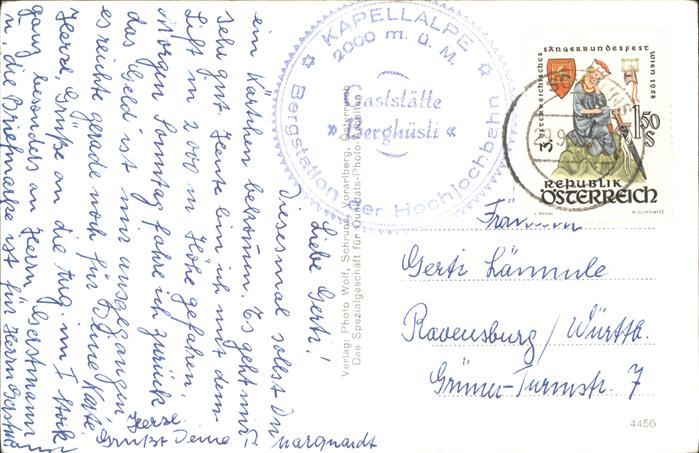 Liebe Gerti!
Diesesmal sollst Du
ein Kärtchen bekommen. Es geht mir
sehr gut. Heute bin ich mit dem
Lift in 2000 m Höhe gefahren.
Morgen Sonntag fahre ich zurück
das Geld ist mir ausgegangen
es reicht gerade noch für Deine Karte.
Herzl. Grüße an die Aug. im I Stock
ganz besonders an Herrn Gerstmann
die Briefmarke ist für Herrn Gerstmann
Herzl.
Grüßt Deine
Marquardt
KAPELLALPE
2000 m. ü. M.
Gaststätte
» Berghüsli «
Bergstation der Hochjochbahn
Verlag: Photo Wolf, Schruns, Vorarlberg, Österreich
Das Spezialgeschäft für Qualitäts-Photo-Arbeiten
3. ÖSTERREICHISCHES SÄNGERBUNDESFEST WIEN 1958
1.50
S
REPUBLIK
ÖSTERREICH
Fräulein
Gerti Lämmle
Ravensburg / Württb.
Grüner-Turmstr. 7
4456